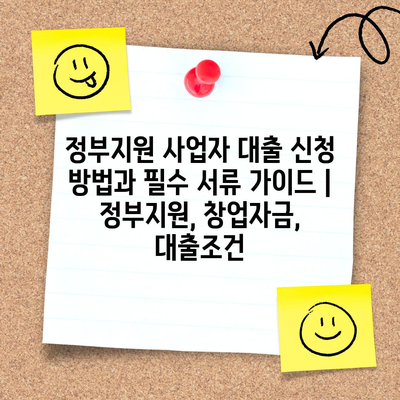 정부지원 사업자 대출 신청
방법과 필수 서류 가이드 |
정부지원, 창업자금,
대출조건